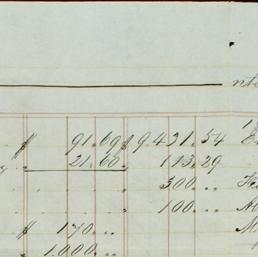 nt
$ 91.69 $ 9.431.54
21.60 113.29
300 ..
100 ..
$ 170 ..
1.000 ..